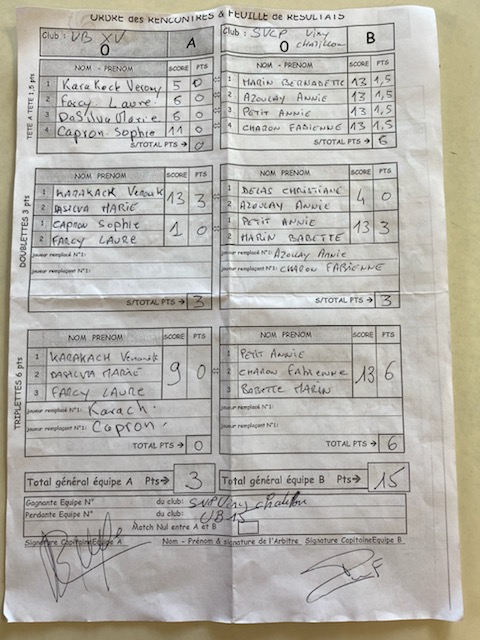 ORDRE des RENCONTRES & FEUILLE de RESULTATS
Club : UB XV A Club : SVCP Viry
0 0 chatillon B
TETE A TETE 1,5 pts
NOM - PRENOM SCORE PTS NOM - PRENOM SCORE PTS
1 Karakach Verony 5 0 1 MARIN BERNADETTE 13 1,5
2 Farcy Laure 6 0 2 AZOULAY ANNIE 13 1,5
3 DaSilva Marie 6 0 3 PETIT ANNIE 13 1,5
4 Capron Sophie 11 0 4 CHARON FABIENNE 13 1,5
S/TOTAL PTS → 0 S/TOTAL PTS → 6
DOUBLETTES 3 pts
NOM PRENOM SCORE PTS NOM PRENOM SCORE PTS
1 KARAKACH Veronik 13 3 1 DELAS CHRISTIANE 4 0
2 DASILVA MARIE 2 AZOULAY ANNIE
1 CAPRON Sophie 1 0 1 PETIT ANNIE 13 3
2 FARCY LAURE 2 MARIN BABETTE
joueur remplacé N°1: joueur remplacé N°1: AZOULAY Annie
joueur remplaçant N°1: joueur remplaçant N°1: CHARON FABIENNE
S/TOTAL PTS → 3 S/TOTAL PTS → 3
TRIPLETTES 6 pts
NOM PRENOM SCORE PTS NOM PRENOM SCORE PTS
1 KARAKACH Veronik 9 0 1 PETIT ANNIE 13 6
2 DASILVA MARIE 2 CHARON FABIENNE
3 FARCY LAURE 3 BABETTE MARIN
joueur remplacé N°1: Karach. joueur remplacé N°1:
joueur remplaçant N°1: Capron. joueur remplaçant N°1:
TOTAL PTS → 0 TOTAL PTS → 6
Total général équipe A Pts→ 3 Total général équipe B Pts→ 15
Gagnante Equipe N° du club: SVP Viry chatillon
Perdante Equipe N° du club: UB 15
Match Nul entre A et B
Signature CapitaineEquipe A Nom - Prénom & signature de l'Arbitre Signature CapitaineEquipe B